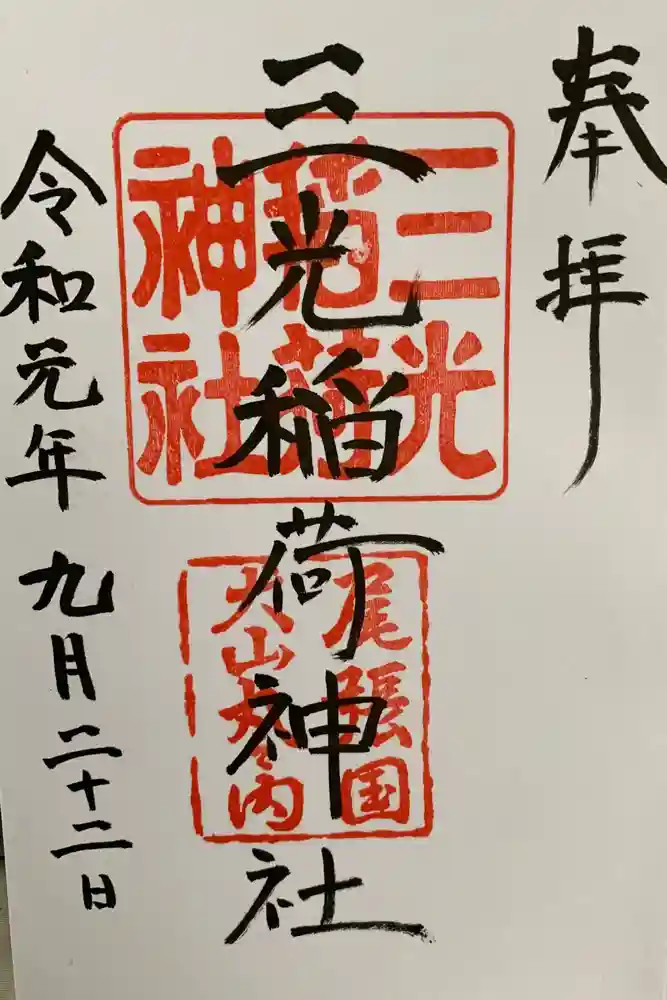 奉拝
三光稲荷神社
令和元年 九月二十二日
三光
稲荷
神社
尾張国
犬山城之内